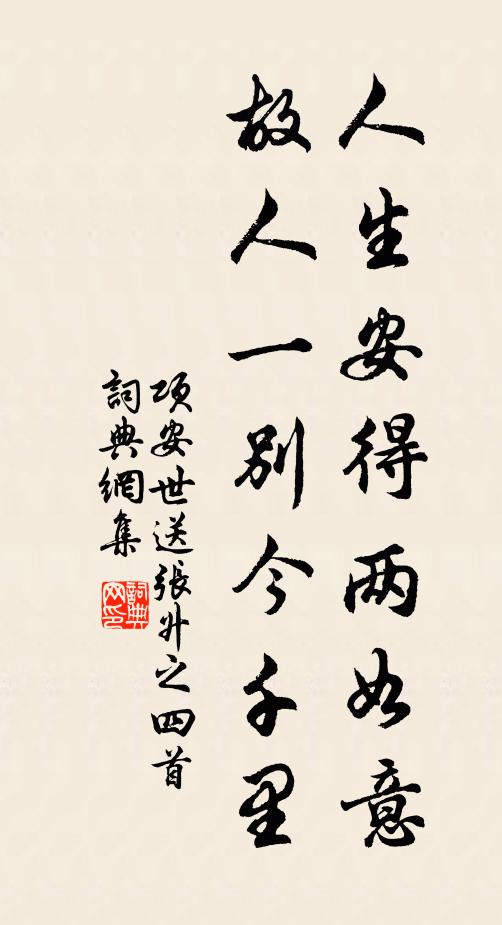 人生安得两如意
故人一别今千里
项安世送張升之四首
詞典網集
詞典
网印